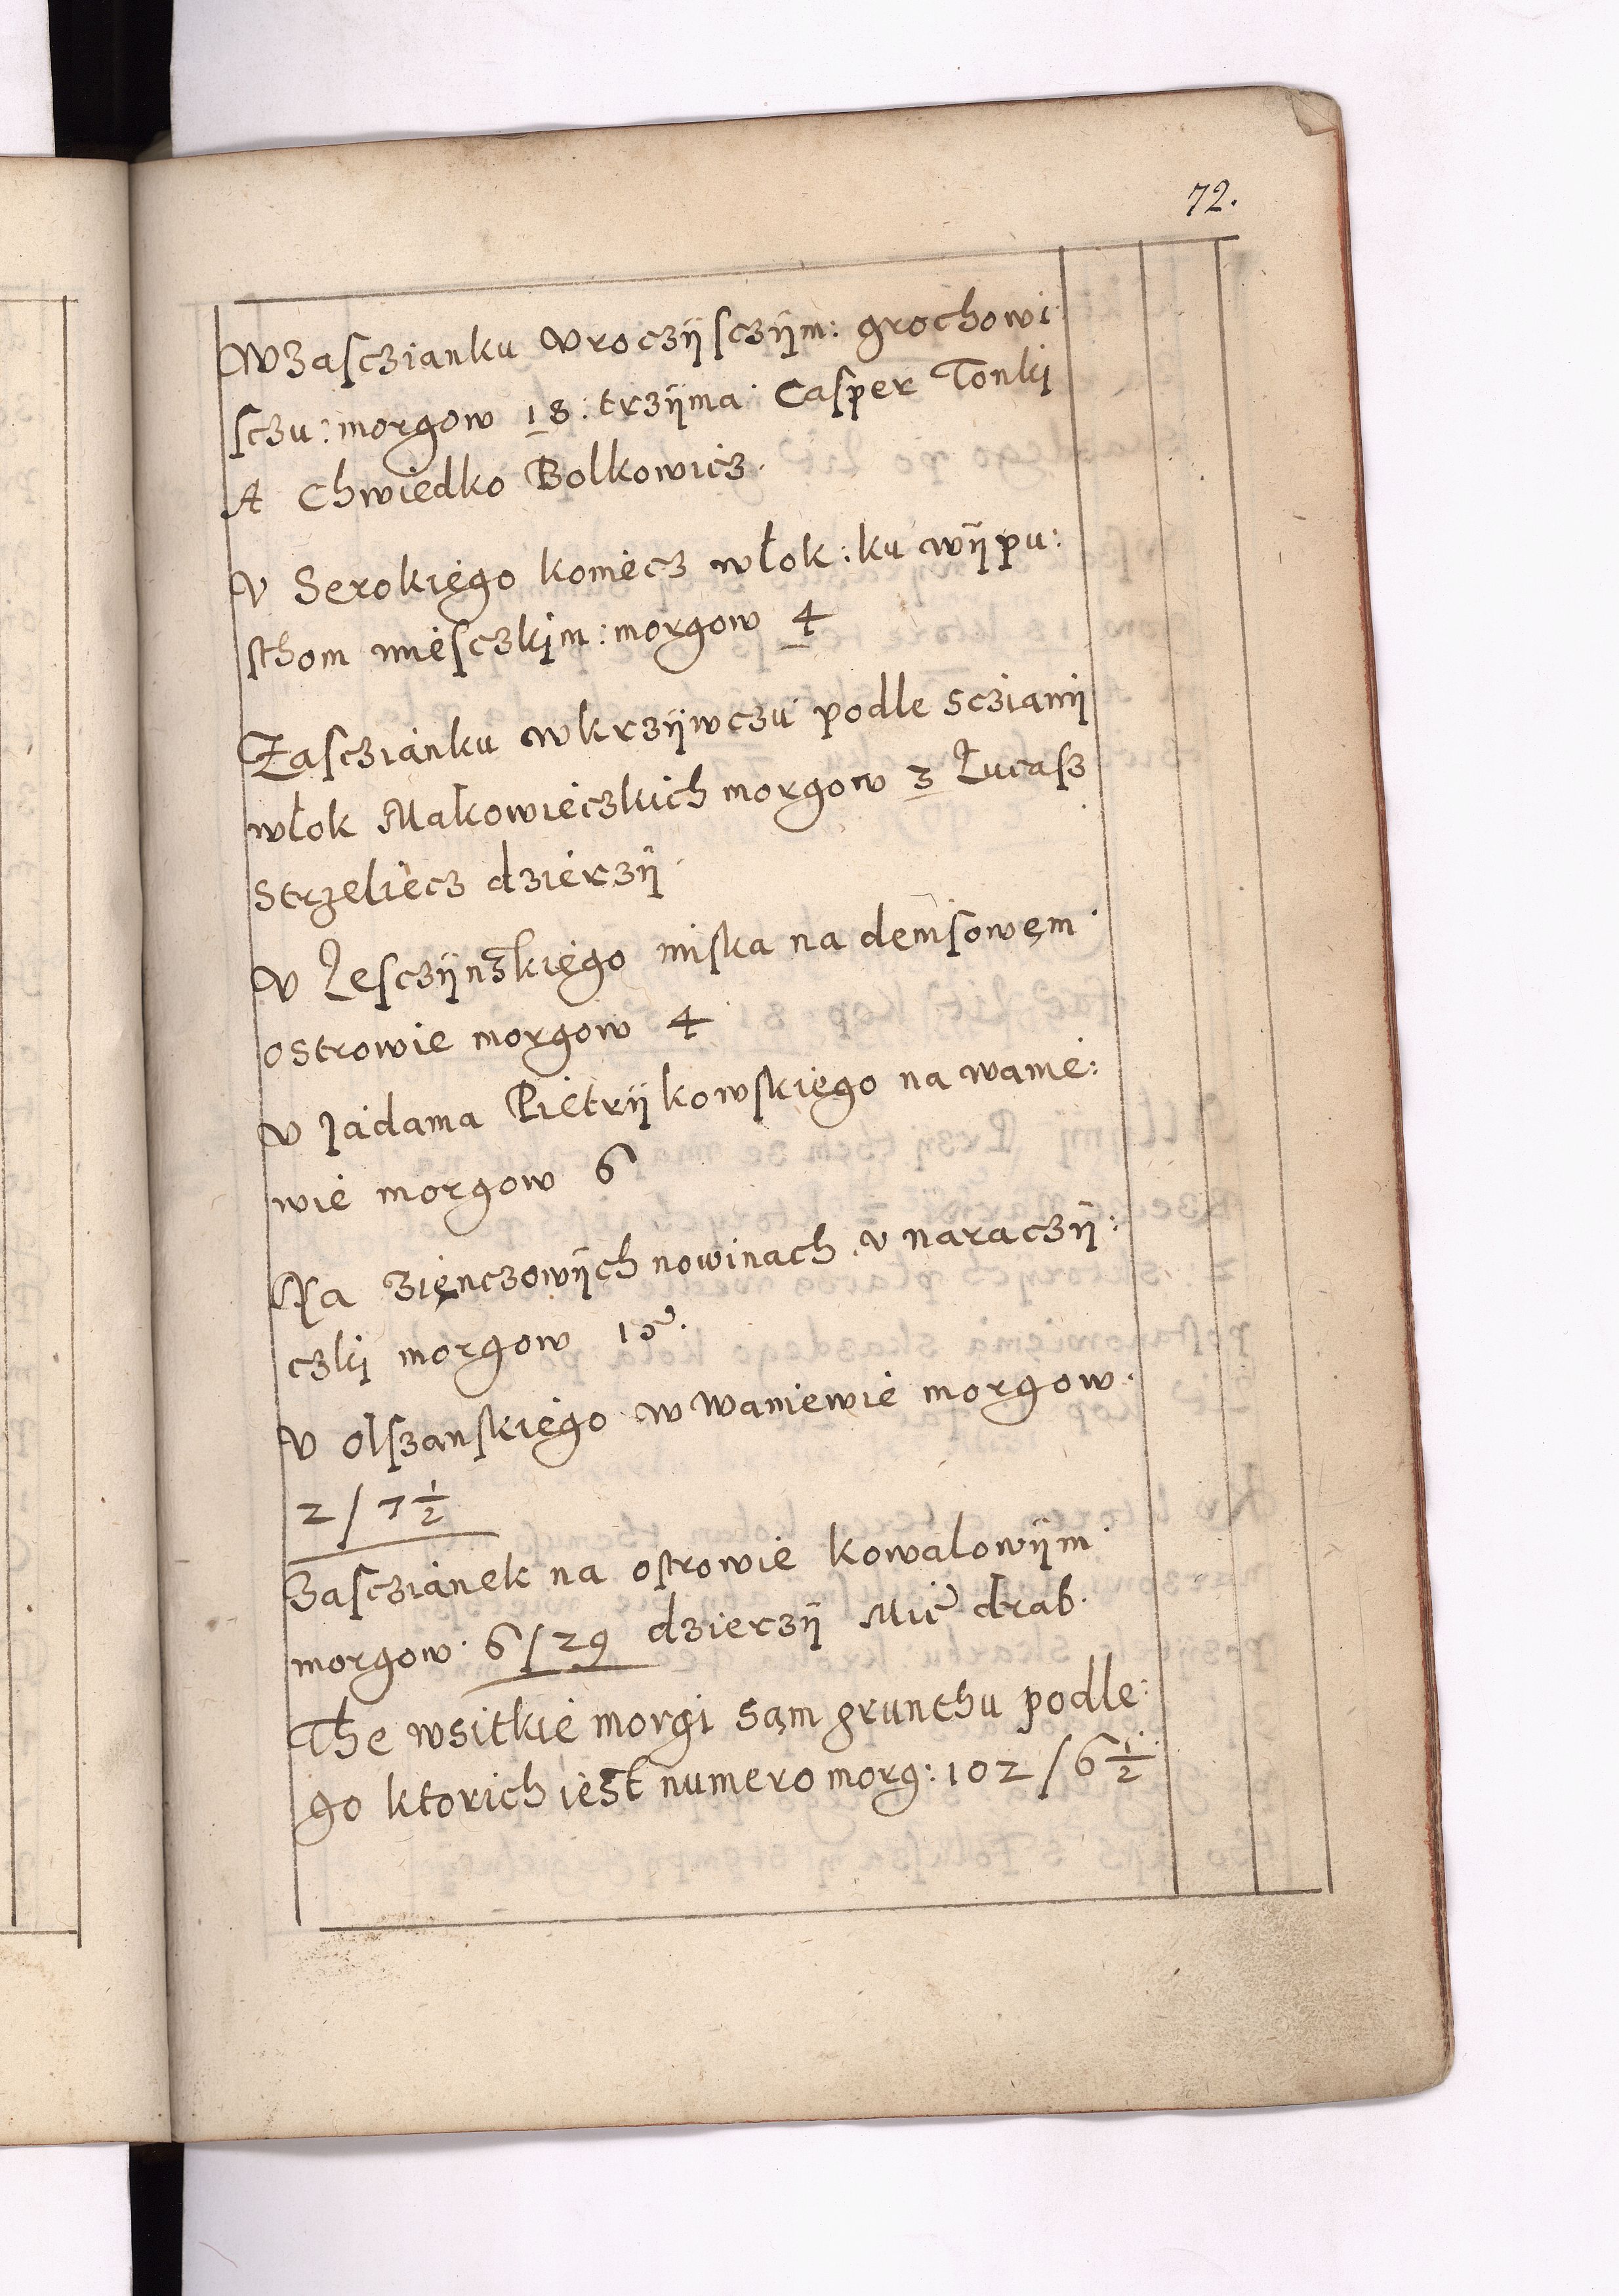 72.
W Zasczianku vroczÿsczÿm: grochowi
sczu: morgow 18: trzÿma Casper Tonki
A Chwiedko Bolkowicz.
V Serokiego koniecz włok: ku wÿpu:
sthom mieſczkim: morgow 4
Zasczianku wkrzÿwczu podle sczianÿ
włok Makowieczkich morgow 3 Łucasz
Strzeliecz dzierzÿ.
V Lesczÿnskiego miska na denisowęm
ostrowie morgow 4
V Jadama Pietrÿkowskiego na wanie:
wie morgow 6
Na Zięnczowÿch nowinach v naraczÿ:
czki morgow
V Olszanskiego w waniewie morgow.
2 / 7 1/2
Zasczianek na ostrowie kowalowÿm
morgow 6 / 29 dzierzÿ Mić drab.
The wsitkie morgi sąm grunthu podle:
go ktorich iest numero morg: 102 / 6 1/2